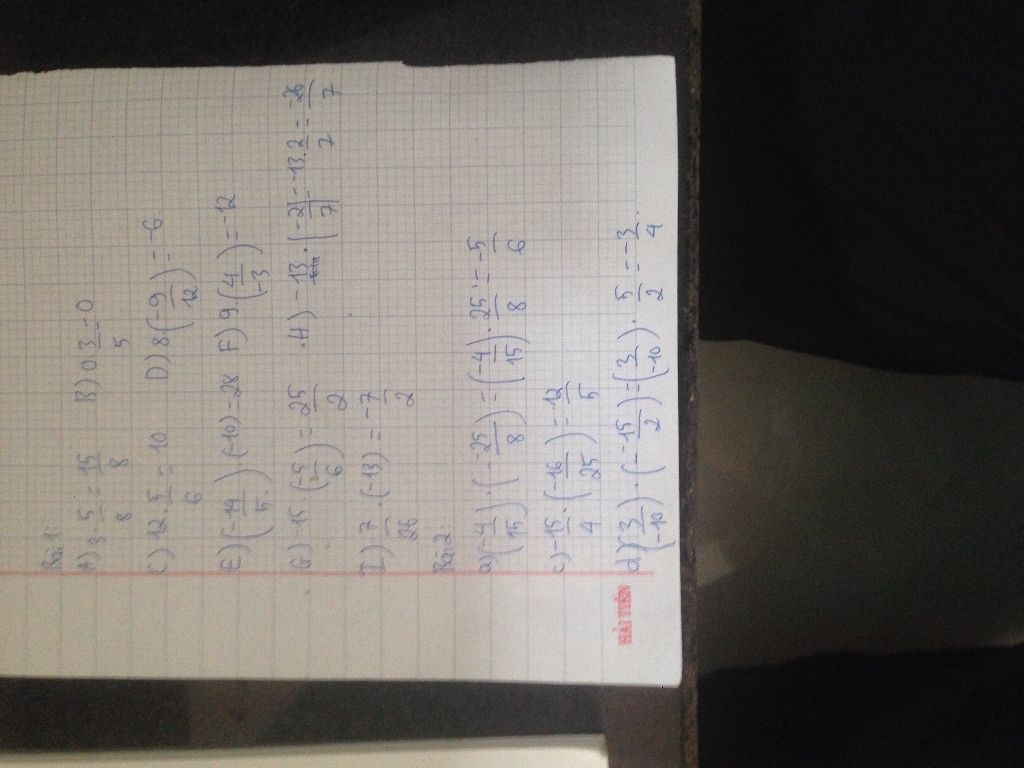 Bài 1:
A) 3 · 5/8 = 15/8 B) 0 3/5 = 0
C) 12 . 5/6 = 10 D) 8 (-9/12) = -6
E) (-14/5) (-10) = 28 F) 9 (4/-3) = -12
G) -15 (-5/6) = 25/2 H) -13 . (-2/7) = -13.2/7 = -26/7
I) 7/26 . (-13) = -7/2
Bài 2:
a) (-4/15) . (-25/8) = (-4/15) . 25/8 = -5/6
c) -15/4 . (-16/25) = 12/5
d) (3/-10) . (-15/2) = (3/-10) . 5/2 = -3/4 .
HẢI TIẾN